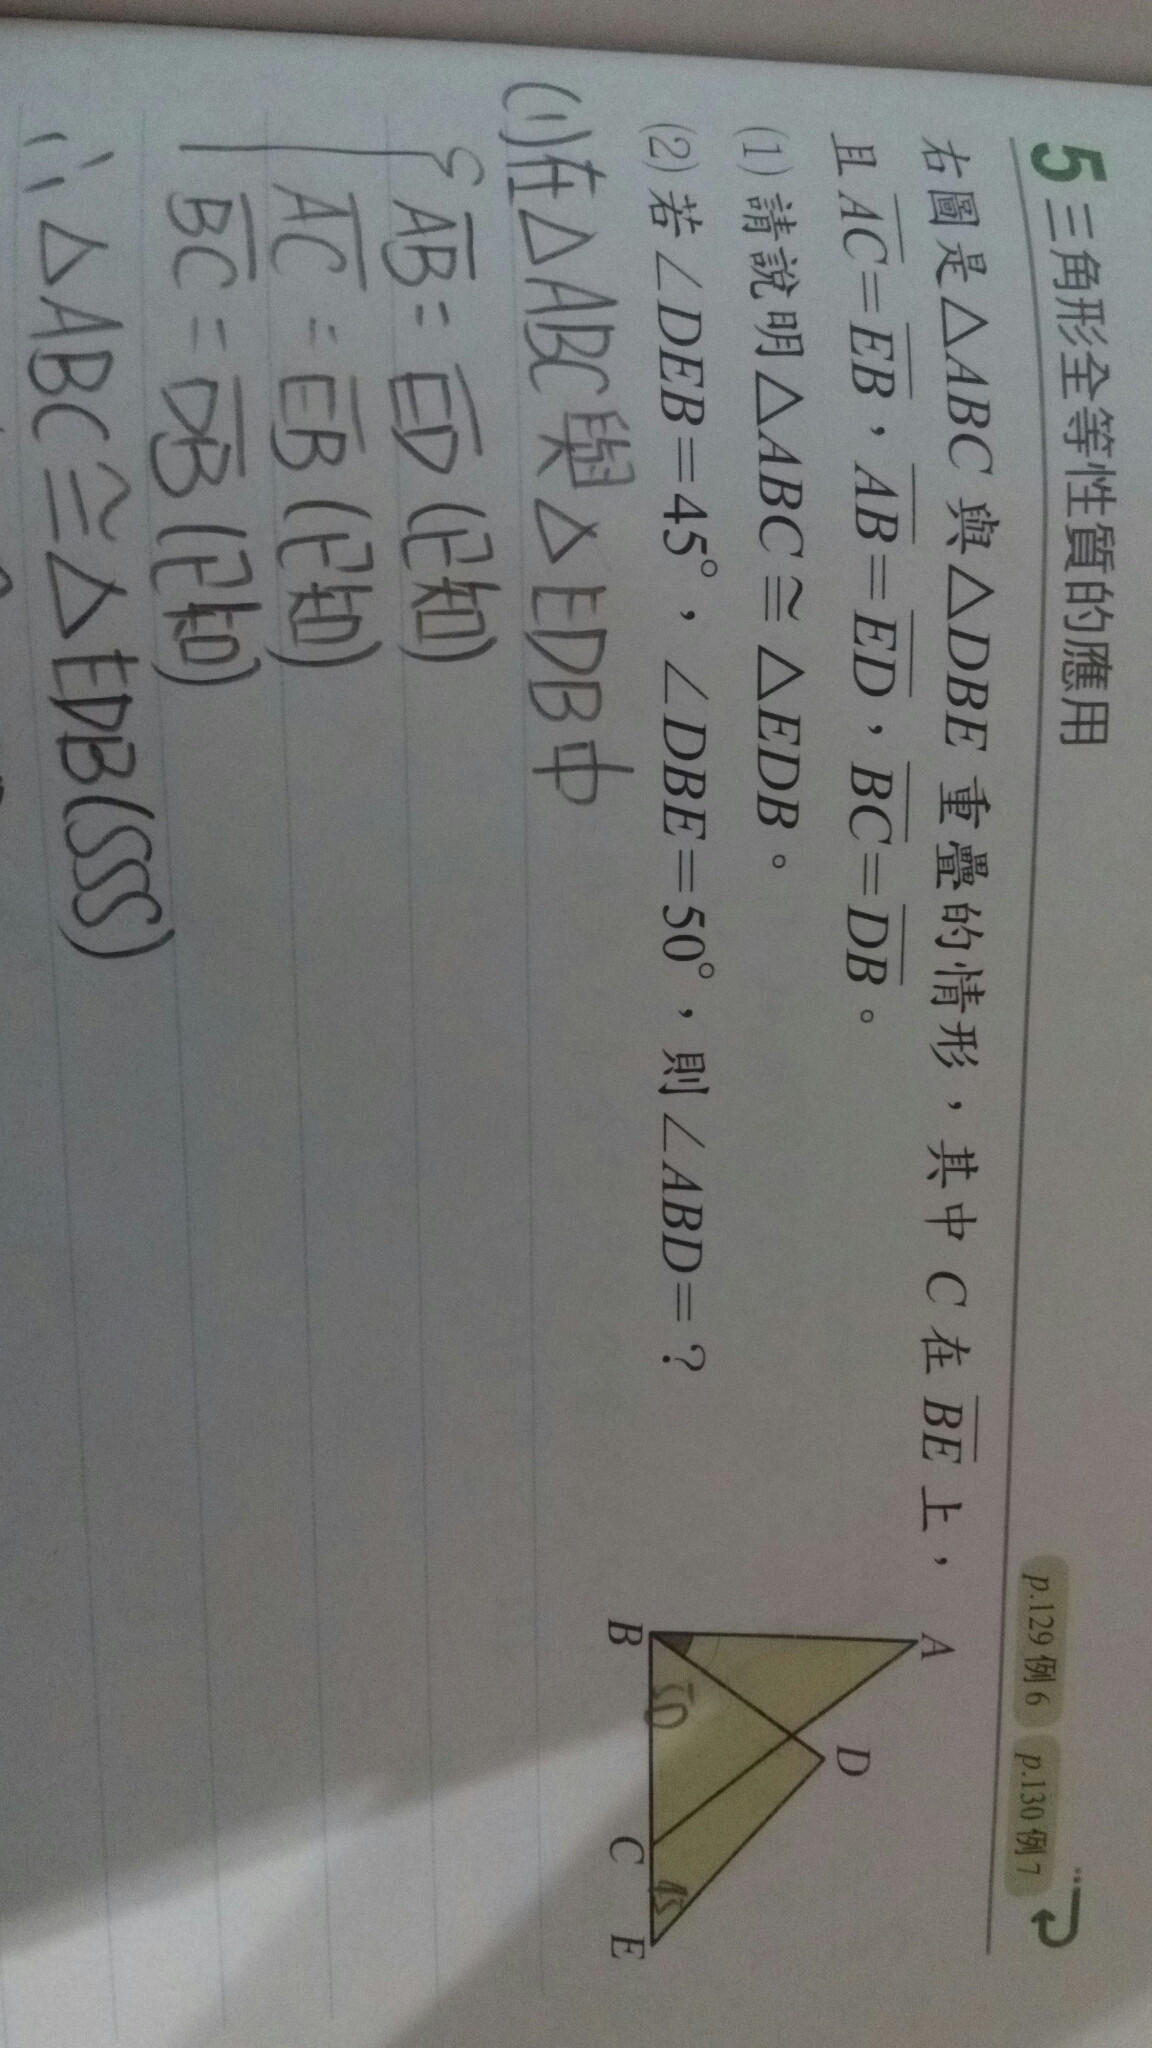 5 三角形全等性質的應用 p.129 例6 p.130 例7
右圖是△ABC 與△DBE 重疊的情形,其中 C 在 BE 上,
且 AC=EB,AB=ED,BC=DB。
(1) 請說明△ABC≅△EDB。
(2) 若∠DEB=45°,∠DBE=50°,則∠ABD=?
A
D
B
C
E
50
45
(1)在△ABC與△EDB中
AB=ED(已知)
AC=EB(已知)
BC=DB(已知)
∴△ABC≅△EDB(SSS)